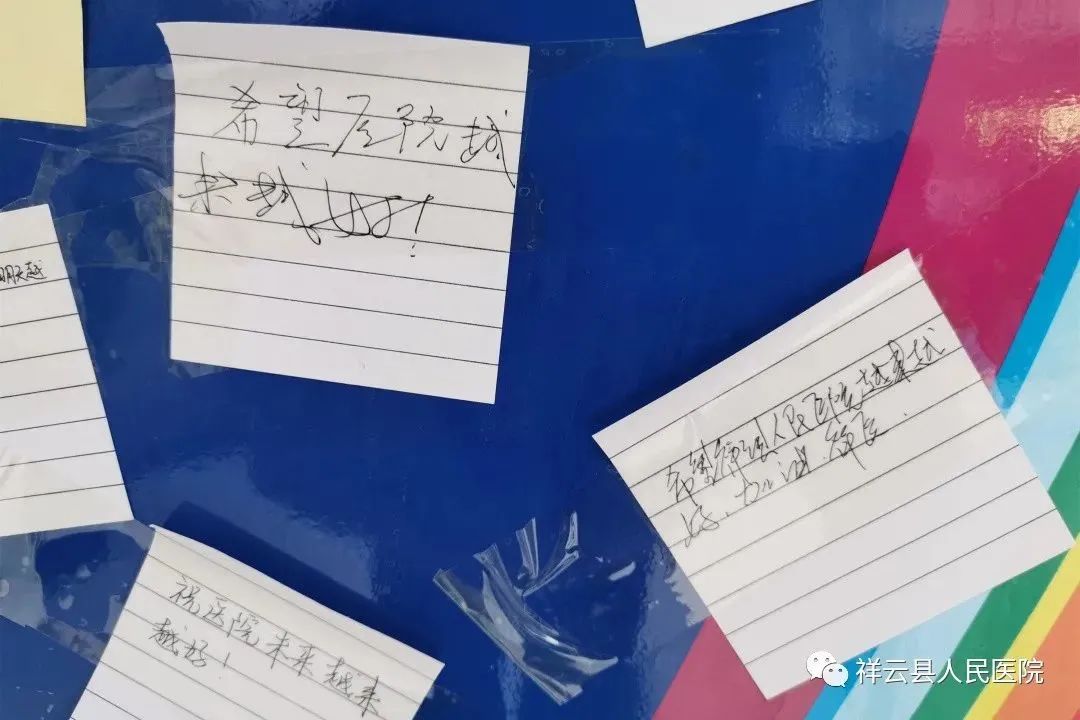 希望医院越
来越好！
明天越
希望祥云人民医院越来越
好.加油.
祝医院未来越来
越好！
祥云县人民医院